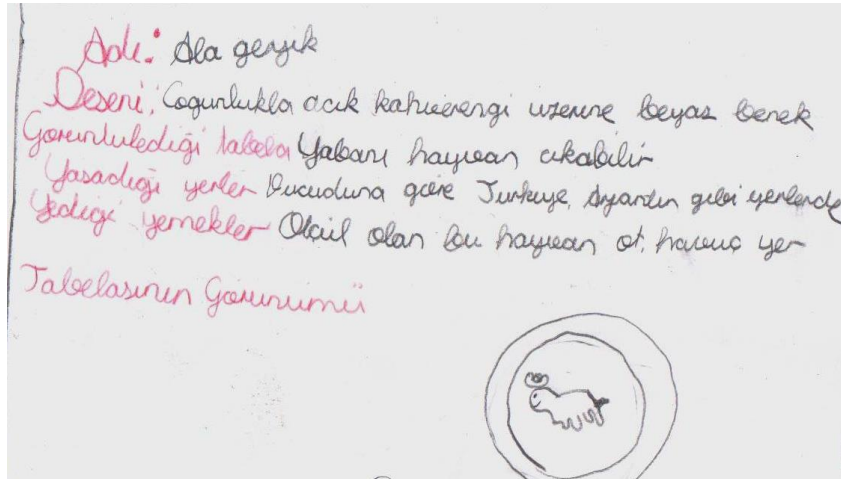 Adı: Ala geyik
Deseni: Cogunlukla acık kahverengi uzerine beyaz benek
Goruntulediği tabela Yabani hayvan cıkabilir
Yasadıgı yerler Vucuduna göre Turkiye, gibi yerlerde
Yediği yemekler Otcul olan bu hayvan ot, havuç yer
Tabelasının Gorunumü